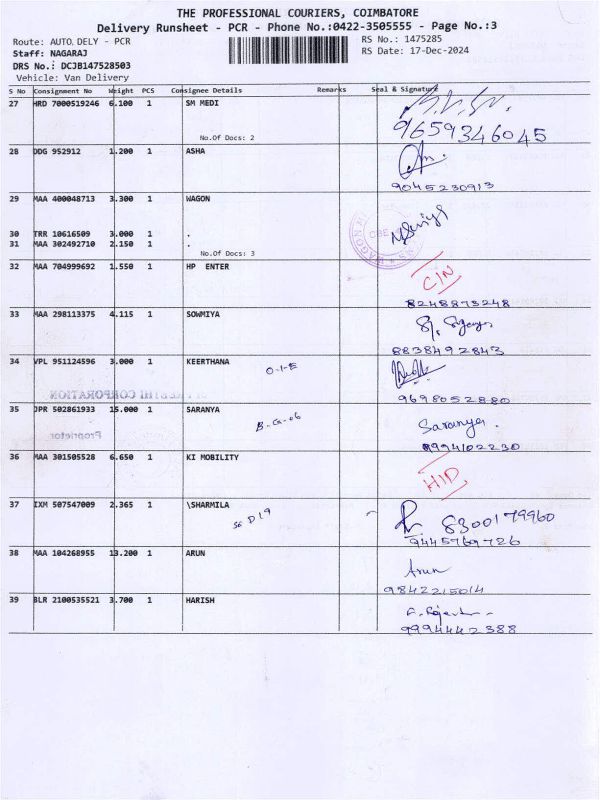 THE PROFESSIONAL COURIERS, COIMBATORE
Delivery Runsheet - PCR - Phone No.:0422-3505555 - Page No.:3
Route: AUTO, DELY - PCR
RS No.: 1475285
Staff: NAGARAJ
RS Date: 17-Dec-2024
DRS No.: DCJB147528503
Vehicle: Van Delivery
S No Consignment No Weight PCS Consignee Details Remarks Seal & Signature
27 HRD 7000519246 6.100 1 SM MEDI
No.Of Docs: 2
9659346045
28 DDG 952912 1.200 1 ASHA
9045230913
29 MAA 400048713 3.300 1 WAGON
30 TRR 10616509 3.000 1 .
31 MAA 302492710 2.150 1 .
No.Of Docs: 3
32 MAA 704999692 1.550 1 HP ENTER
C/N
8248873248
33 MAA 298113375 4.115 1 SOWMIYA
8838492843
34 VPL 951124596 3.000 1 KEERTHANA
O-1-E
9698052880
35 JPR 502861933 15.000 1 SARANYA
B-G-06
Saranya.
9994102230
Proprietor
36 MAA 301505528 6.650 1 KI MOBILITY
H/D
37 IXM 507547009 2.365 1 \SHARMILA
8300179960
9445769726
38 MAA 104268955 13.200 1 ARUN
Arun
9842215014
39 BLR 2100535521 3.700 1 HARISH
9994442388